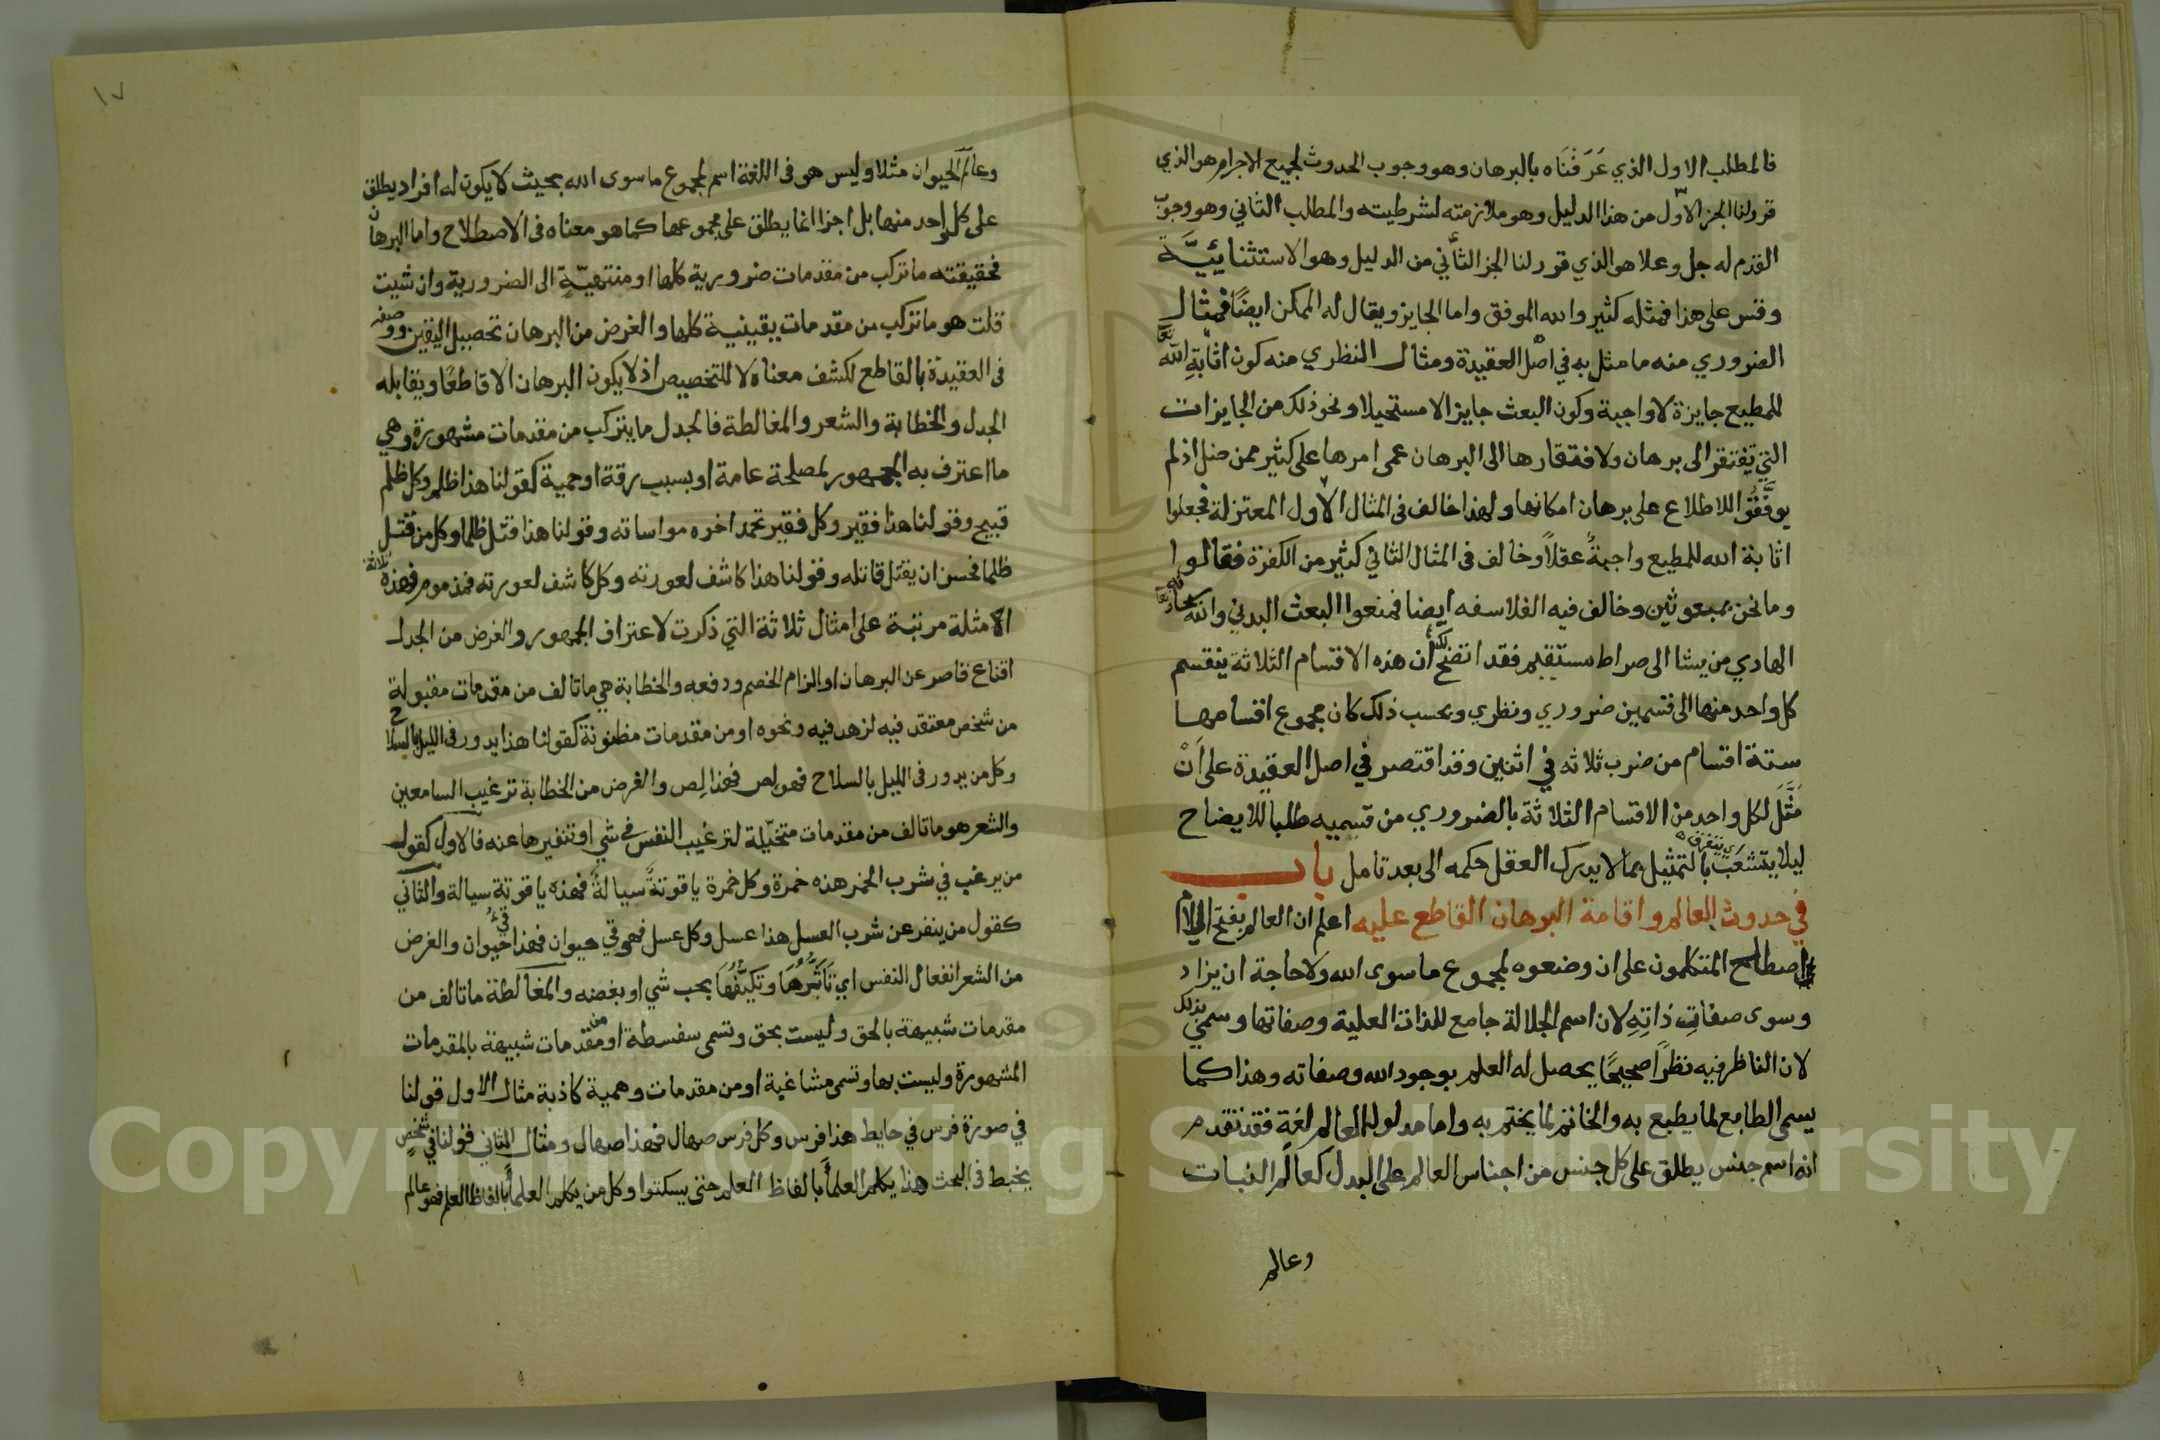 فالمطلب الاول الذي عَرَفْنَاه بالبرهان وهو وجوب الحدوث لجميع الاجرام هو الذي
قررلنا الجز الاوّل من هذا الدليل وهو ملازمته لشرطيته والمطلب الثاني وهو وجوب
القدم له جل وعلا هو الذي قررلنا الجز الثّاني من الدليل وهو الاستثنائيَّة
وقس على هذا فمثله كثير والله الموفق واما الجايز ويقال له الممكن ايضًا فمثال
الضروري منه ما مثل به في اصل العقيدة ومثال النظري منه كون اثابةِ الله
للمطيع جايزة لا واجبة وكون البعث جايز الا مستحيلا ونحو ذلك من الجايزات
التي تفتقر الى برهان ولافتقارها الى البرهان عمى امرها على كثير ممن ضل اذ لم
يوفَّقُوا للاطلاع على برهان امكانها ولهذا خالف في المثال الاول المعتزلة فجعلوا
اثابة الله للمطيع واجبةً عقلاً وخالف في المثال الثاني كثير من الكفرة فقالوا
وما نحن بمبعوثين وخالف فيه الفلاسفه ايضا فمنعوا البعث البدني والله
الهادي من يشا الى صراط مستقيم فقد اتضح لك أن هذه الاقسام الثلاثة ينقسم
كل واحد منها الى قسمين ضروري ونظري وبحسب ذلك كان مجموع اقسامها
ستة اقسام من ضرب ثلاثه في اثنين وقد اقتصر في اصل العقيدة على اَنْ
مَثَّلَ لكل واحد من الاقسام الثلاثة بالضروري من قسميه طلبا للايضاح
ليلا يتشعَّبَ بالتمثيل بما لا يدرك العقل حكمه الى بعد تامل باب
في حدوث العالم واقامة البرهان القاطع عليه اعلم ان العالم بفتح اللام
اصطلح المتكلمون على ان وضعوه لمجموع ما سوى الله ولا حاجة ان يزاد
وسوى صفاتِ ذاتِهِ لان اسم الجلالة جامع للذات العلية وصفاتها وسمي بذلك
لان الناظر فيه نظرًا صحيحًا يحصل له العلم بوجود الله وصفاته وهذا كما
يسمى الطابع لما يطبع به والخاتم لما يختم به واما مدلول العالم لغة فقد تقدم
انه اسم جنس يطلق على كل جنس من اجناس العالم على البدل كعالم النبات
وعالم
١٧
وعالم الحيوان مثلا وليس هو في اللغة اسم لمجموع ما سوى الله بحيث لا يكون له افراد يطلق
على كل واحد منها بل اجزا انما يطلق على مجموعها كما هو معناه في الاصطلاح واما البرهان
فحقيقته ما تركب من مقدمات ضرورية كلها او منتهيةٍ الى الضرورية وان شيت
قلت هو ما تركب من مقدمات يقينية كلها والغرض من البرهان تحصيل اليقين ووصفه
في العقيدة بالقاطع لكشف معناه لا للتخصيص اذ لا يكون البرهان الا قاطعًا ويقابله
الجدل والخطابة والشعر والمغالطة فالجدل ما يتركب من مقدمات مشهورة وهي
ما اعترف به الجمهور لمصلحة عامة او بسبب رقة او حمية كقولنا هذا ظالم وكل ظلم
قبيح وقولنا هذا فقير وكل فقير تحمد اخره مواساته وقولنا هذا قتل ظلما وكل من قتل
ظلما فحسن ان يقتل قاتله وقولنا هذا كاشف لعورته وكل كاشف لعورته فمذموم فهذه
الامثلة مرتبة على امثال ثلاثة التي ذكرت لاعتراف الجمهور والغرض من الجدل
اقناع قاصر عن البرهان او الزام الخصم ودفعه والخطابة هي ما تالف من مقدمات مقبولة
من شخص معتقد فيه لزهد فيه ونحوه او من مقدمات مظنونة كقولنا هذا يدور في الليل بالسلاح
وكل من يدور في الليل بالسلاح فهو لص فهذا لِص والغرض من الخطابة ترغيب السامعين
والشعر هو ما تالف من مقدمات متخيّلة لترغيب النفس في شي او تنفيرها عنه فالاول كقول
من يرغب في شرب الخمر هذه خمرة وكل خمرة ياقوتةً سيالةً فهذه ياقوتة سيالة والثاني
كقول من ينفر عن شرب العسل هذا عسل وكل عسل فهو قي حيوان فهذا قي حيوان والغرض
من الشعر انفعال النفس اي تَاَثُّرُهَا وتكيّفُهَا بحب شي او بغضه والمغالطة ما تالف من
مقدمات شبيهة بالحق وليست بحق وتسمى سفسطة او من مقدمات شبيهة بالمقدمات
المشهورة وليست بها وتسمى مشاغبة او من مقدمات وهمية كاذبة مثال الاول قولنا
في صورة فرس في حايط هذا فرس وكل فرس صهال فهذا صهال ومثال الثاني قولنا في شخص
يخبط في البحث هذا يكلم العلماء بالفاظ العلم حتى يسكتوا وكل من يكلم العلماء بالفاظ العلم فهو عالم
Copyright © King Saud University